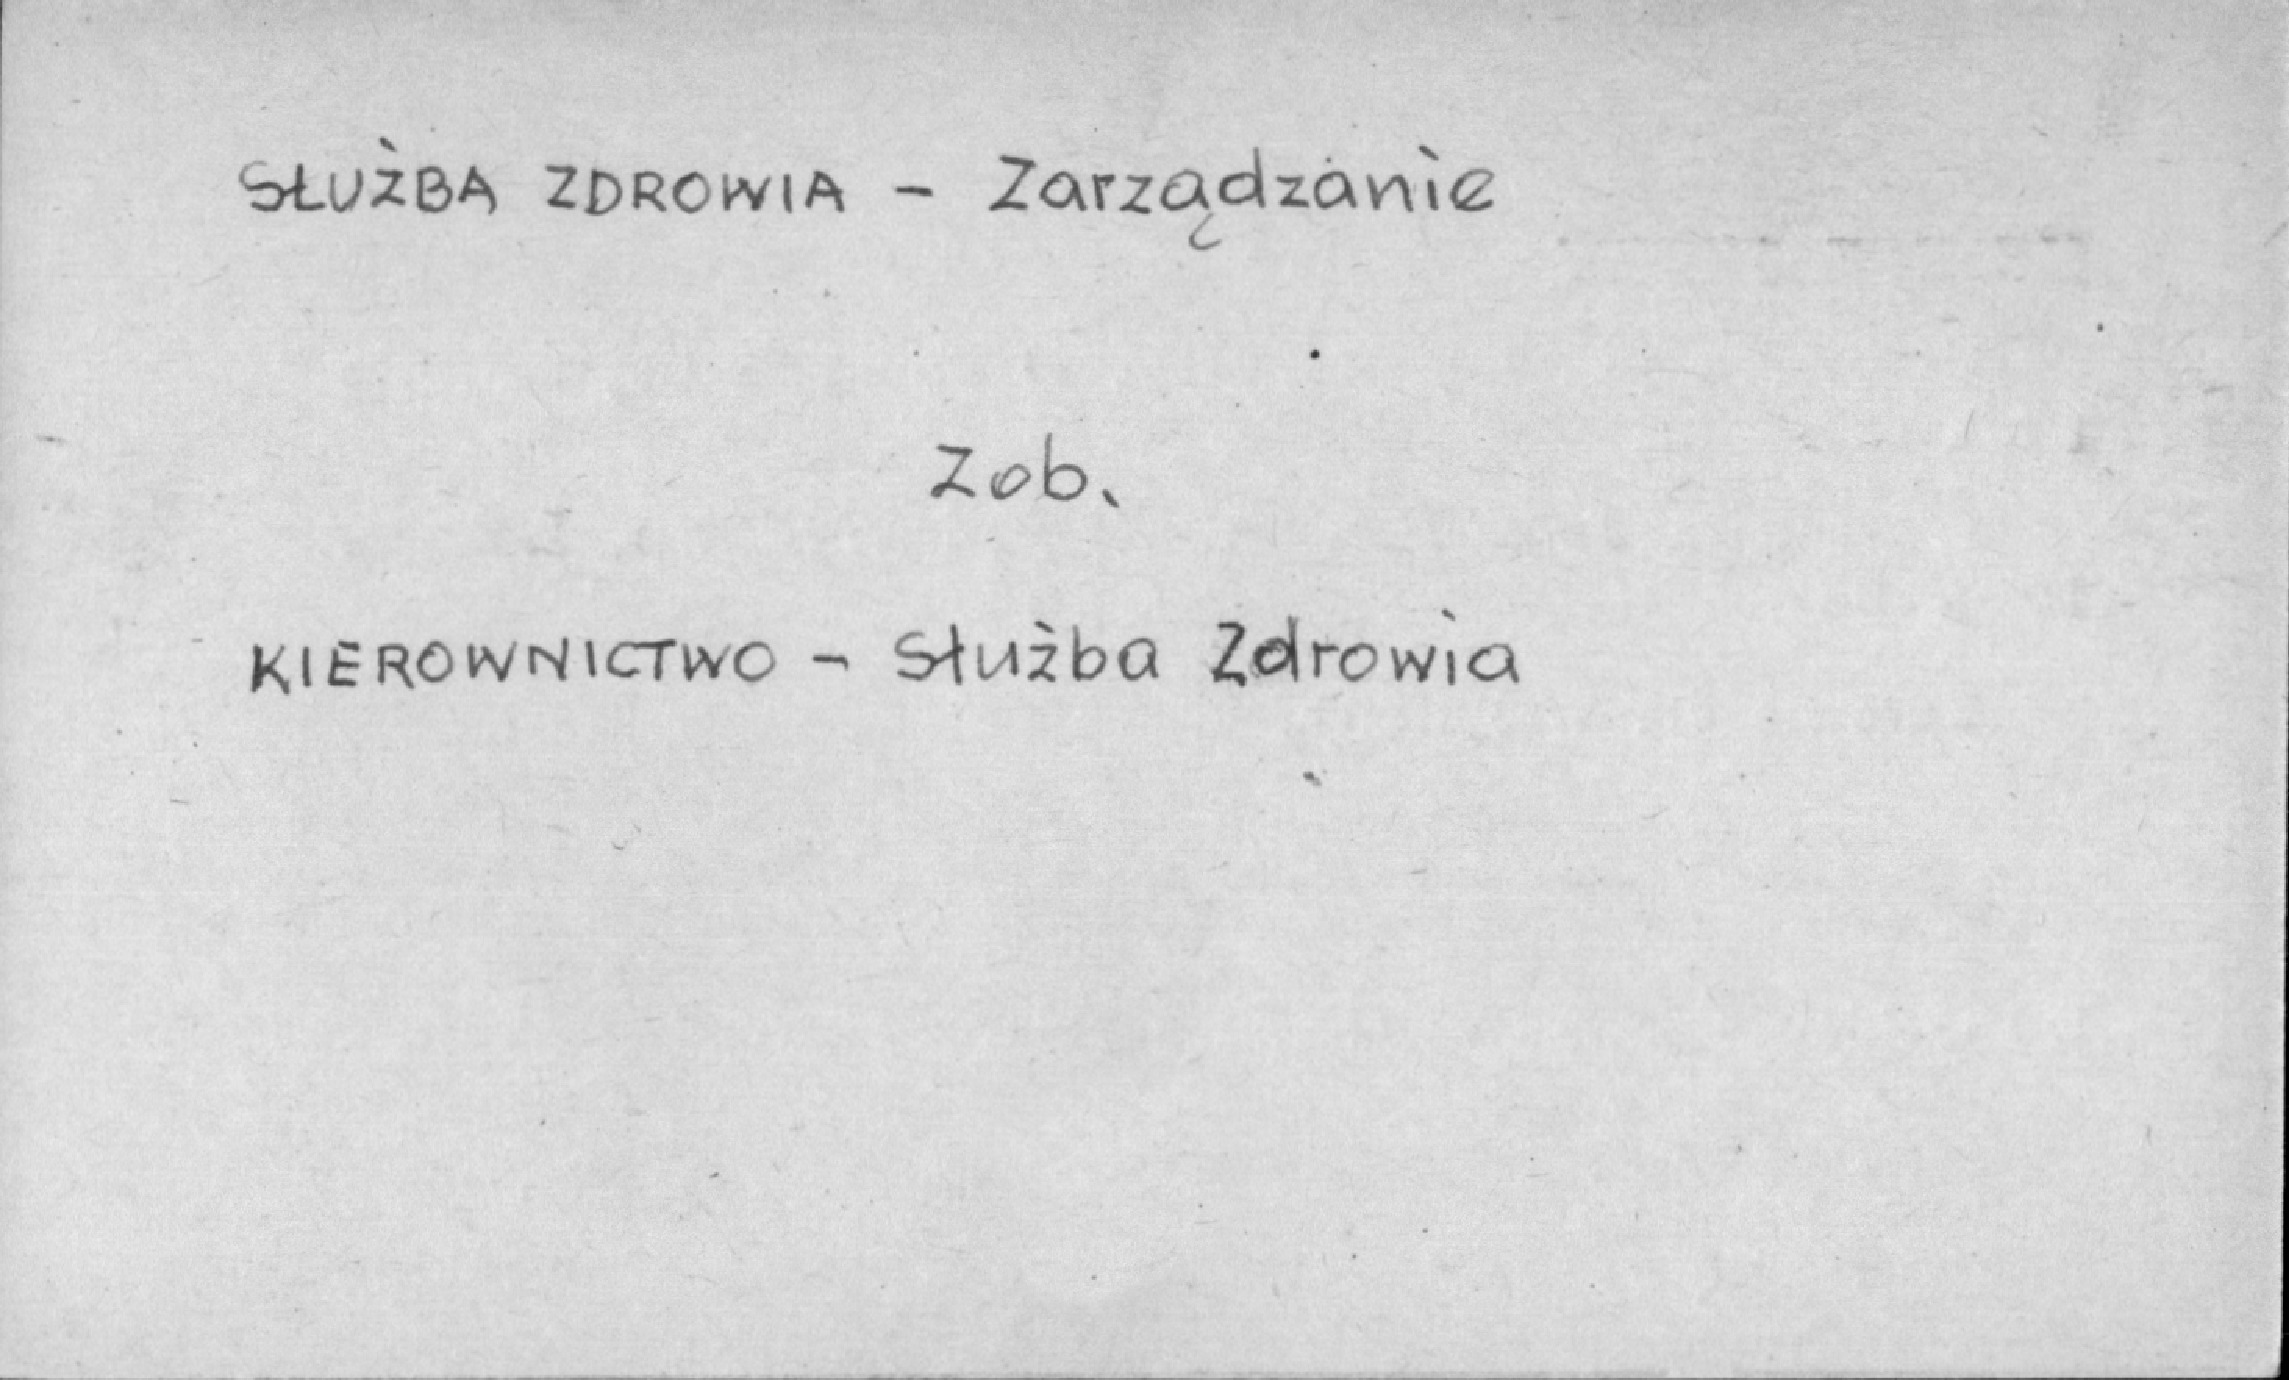 SŁUŻBA ZDROWIA - Zarządzanie
Zob.
KIEROWNICTWO - Służba Zdrowia